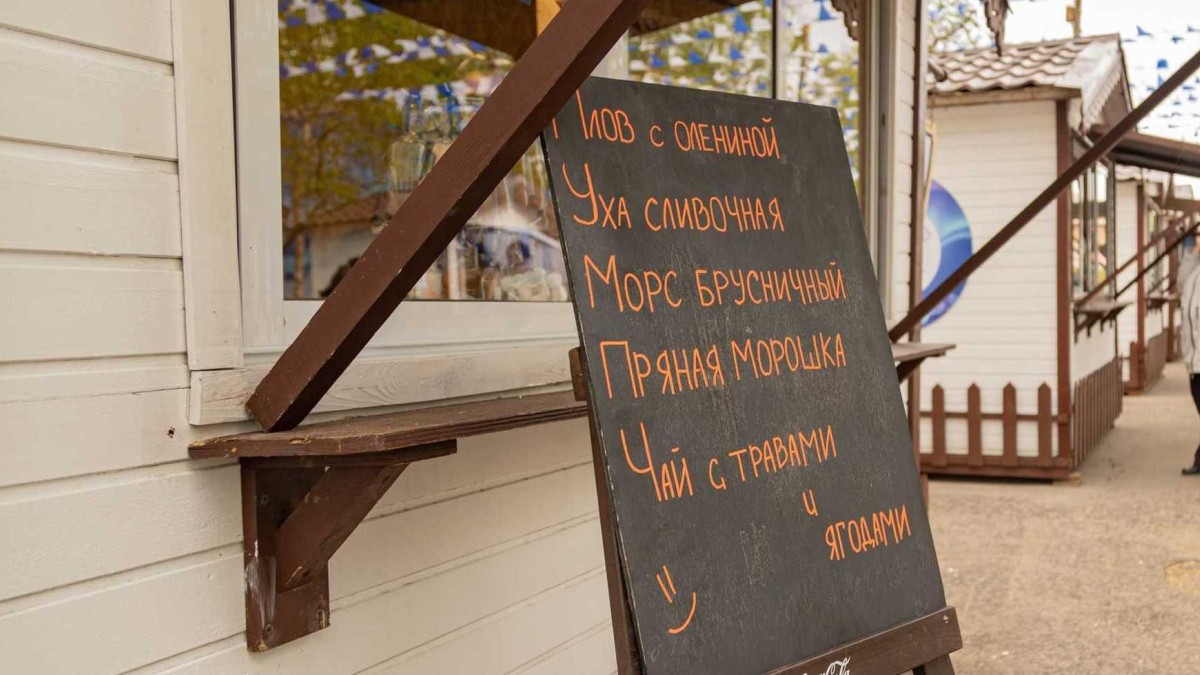 Плов с олениной
Уха сливочная
Морс брусничный
Пряная морошка
Чай с травами
и
ягодами